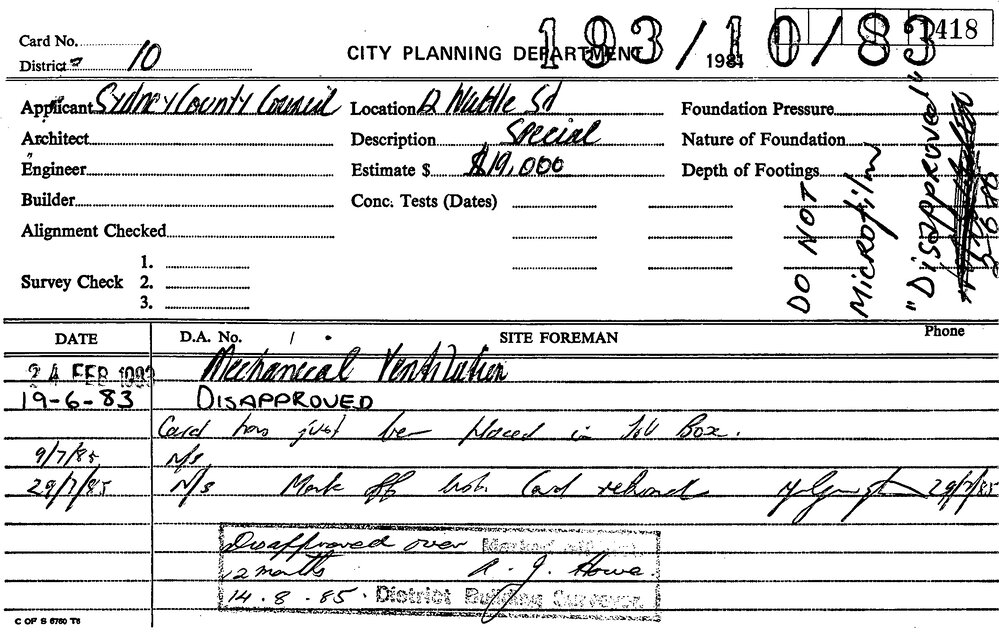 Card No.
District 10
CITY PLANNING DEPARTMENT
193/10/83
1981
418
Applicant Sydney County Council
Location Wattle St
Foundation Pressure
Architect
Description Special
Nature of Foundation
Engineer
Estimate $ $19,000
Depth of Footings
Builder
Conc. Tests (Dates)
Alignment Checked
Survey Check 1.
2.
3.
DO NOT
Microfilm
"Disapproved"
DATE
D.A. No. /
SITE FOREMAN
Phone
24 FEB 1983 Mechanical Ventilation
19-6-83 DISAPPROVED
Card has just been placed in Box.
9/7/85 N/s
29/7/85 N/s Mark off Card 29/7/85
Disapproved over Marked off
12 months R. J. Howe.
14.8.85. District Building Surveyor.
C OF S 6760 T6